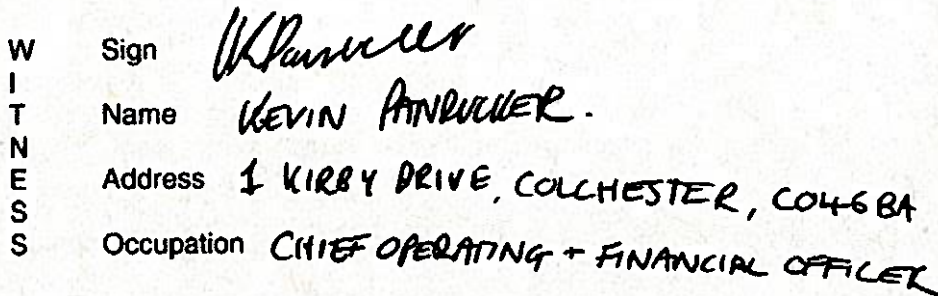 WITNESS
Sign
Name KEVIN PANRUCKER.
Address 1 KIRBY DRIVE, COLCHESTER, CO4 6BA
Occupation CHIEF OPERATING + FINANCIAL OFFICER